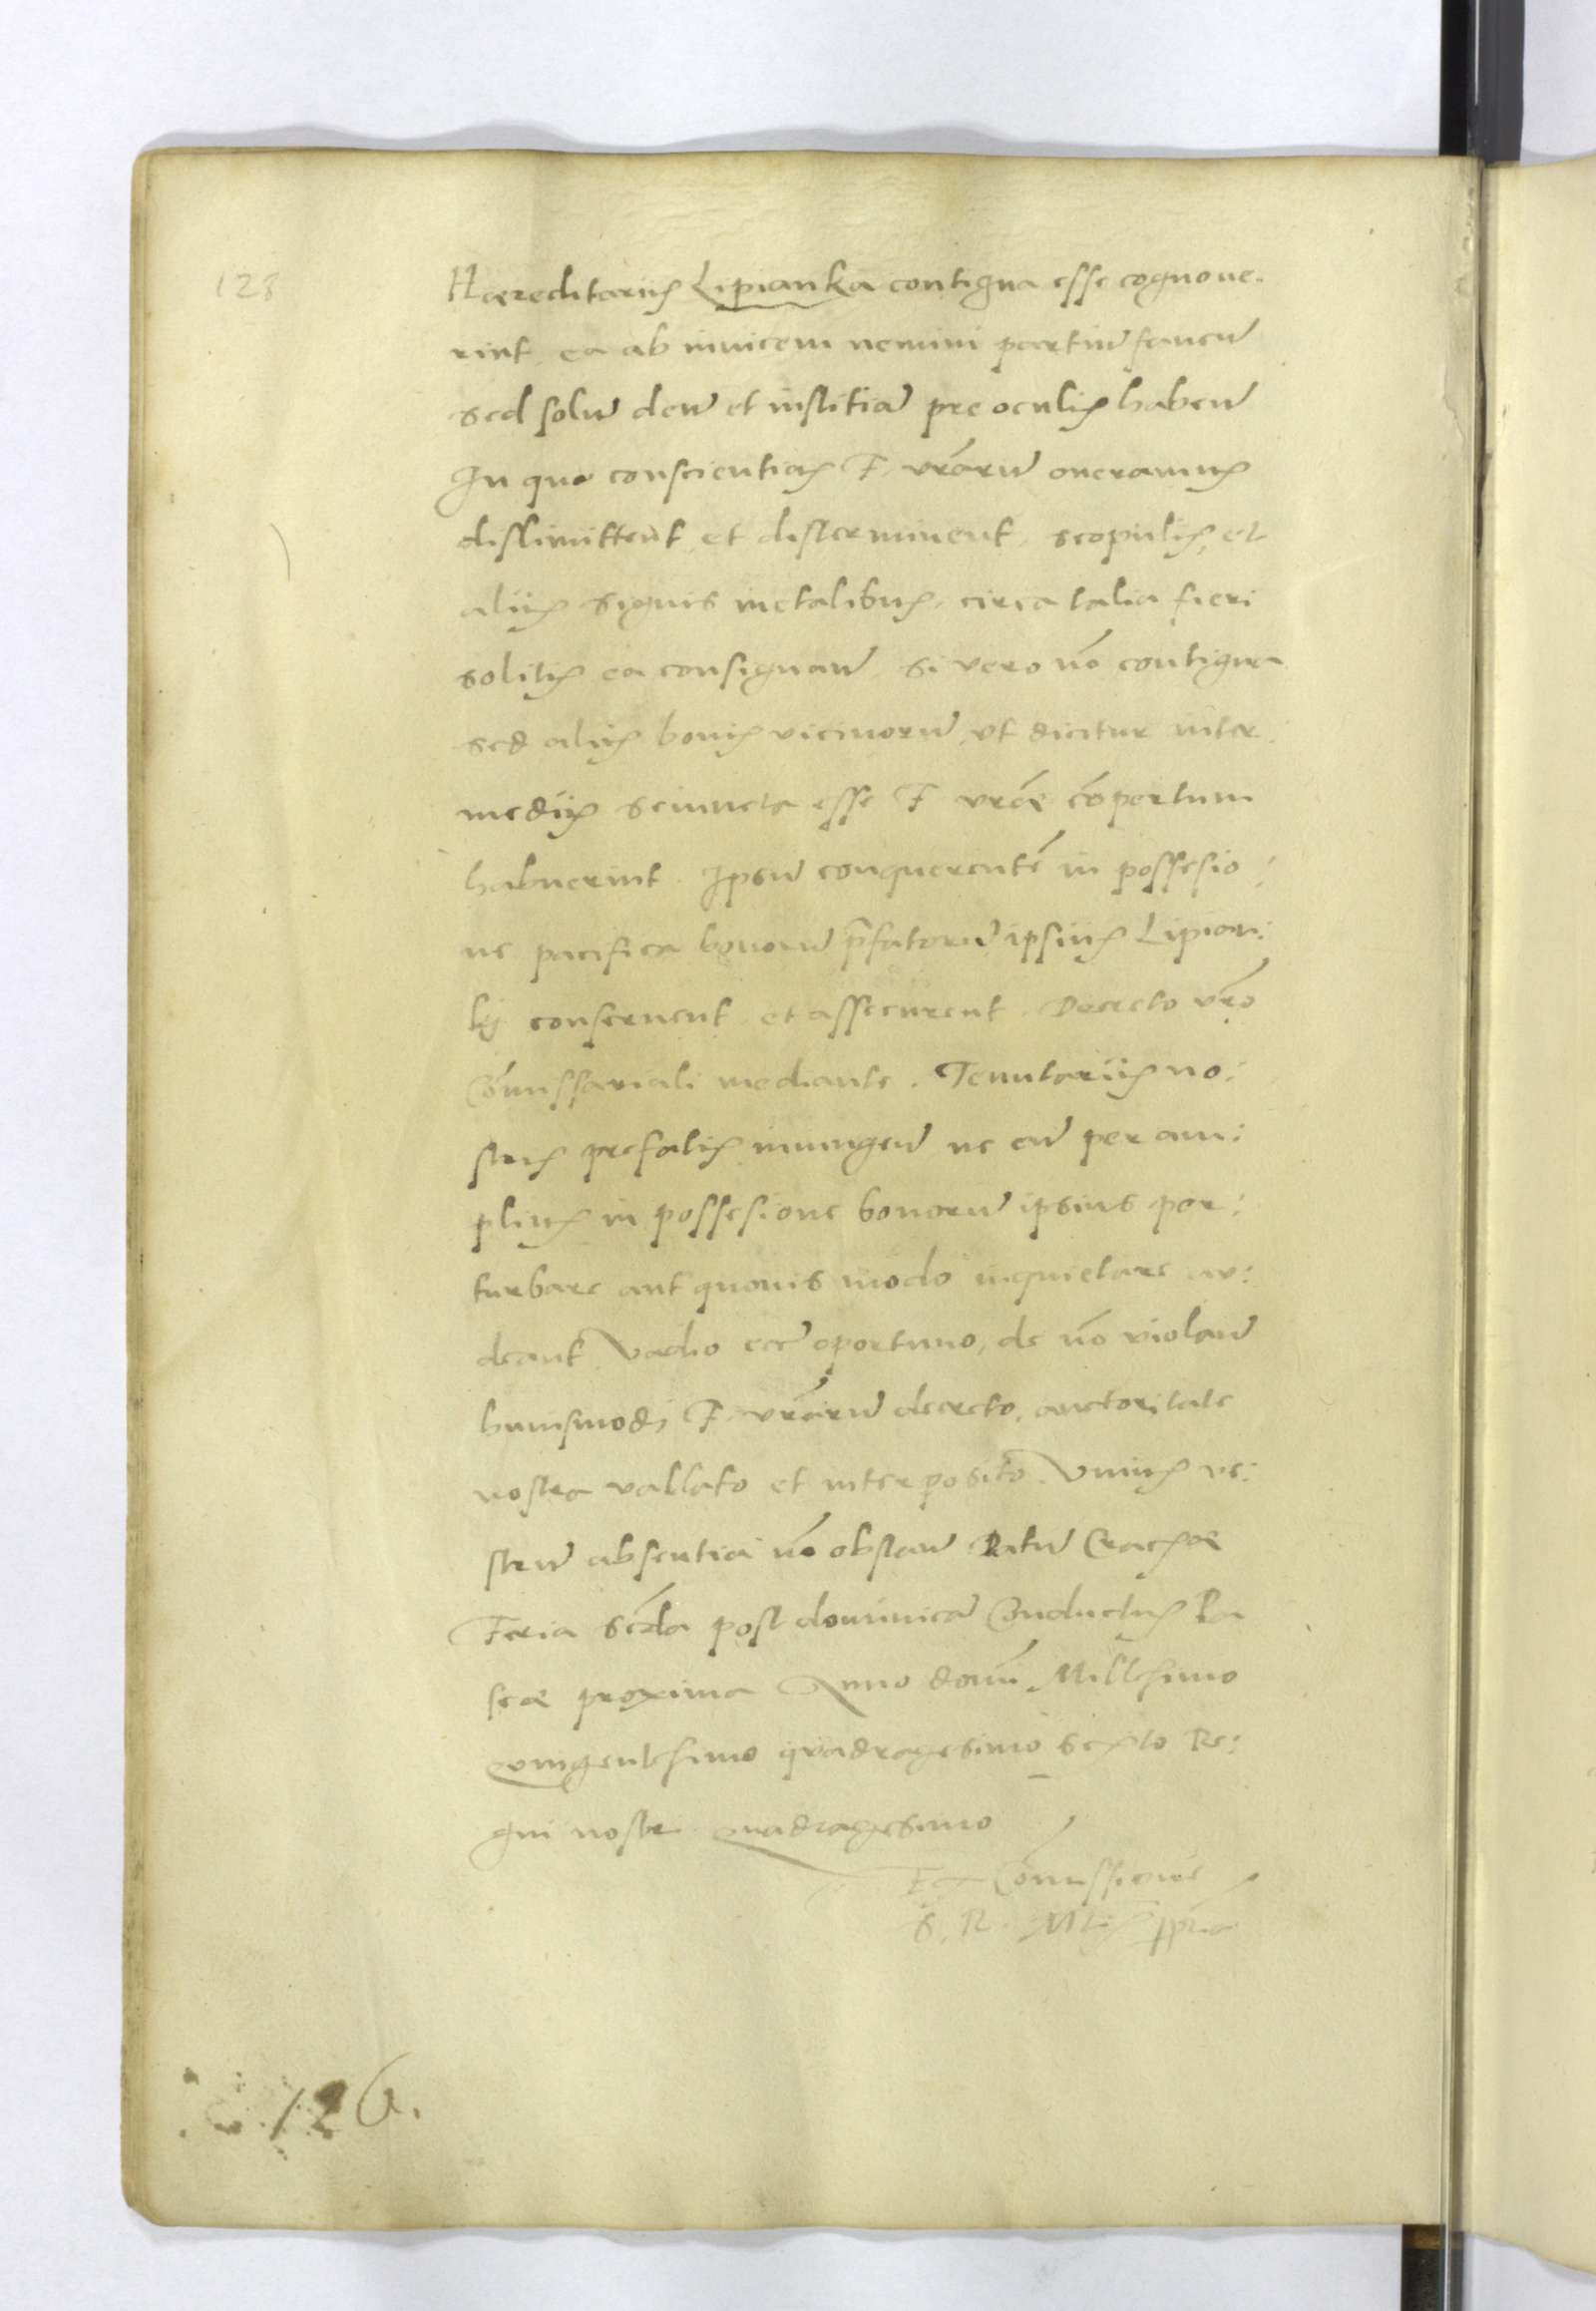 128
Haereditariis Lipianka contigua esse cognoue-
rint ea ab inuicem nemini partiū fauen̄
sed solū deū et iustitiā pre oculis haben̄
In quo conscientias F. vr̄arū oneramus
dislimittent et disterminent scopulis et
aliis signis metalibus circa talia fieri
solitis ea consignan̄ si vero nō contigua
sed aliis bonis vicinorū vt dicitur inter
mediis seiuncta esse F vr̄ae cōpertum
habuerint. Ipsū conquerentē in possesio:
ne pacifica bonorū p̄fatorū ipsius Lipian:
kj conseruent et assecurent. Decreto vr̄o
Cōmissariali mediante. Tenutariis no:
stris prefatis iniungen̄ ne eū per am:
plius in possesione bonorū ipsius per:
turbare aut quouis modo inquietare au:
deant vadio ecc̄ oportuno, de nō violan̄
huiusmodi F. vr̄arū decreto. auctoritate
nostra vallato et interposito. Vnius ve:
strū absentia nō obstan̄ Datū Crac͞oae
Feria scd̄a post dominicā Conductus Pa
scae proxima Anno domī Millesimo
quingentesimo quadragesimo sexto Re:
gni nostri quadragesimo
Ex Cōmissione
S. R. Mtis ppria
126.